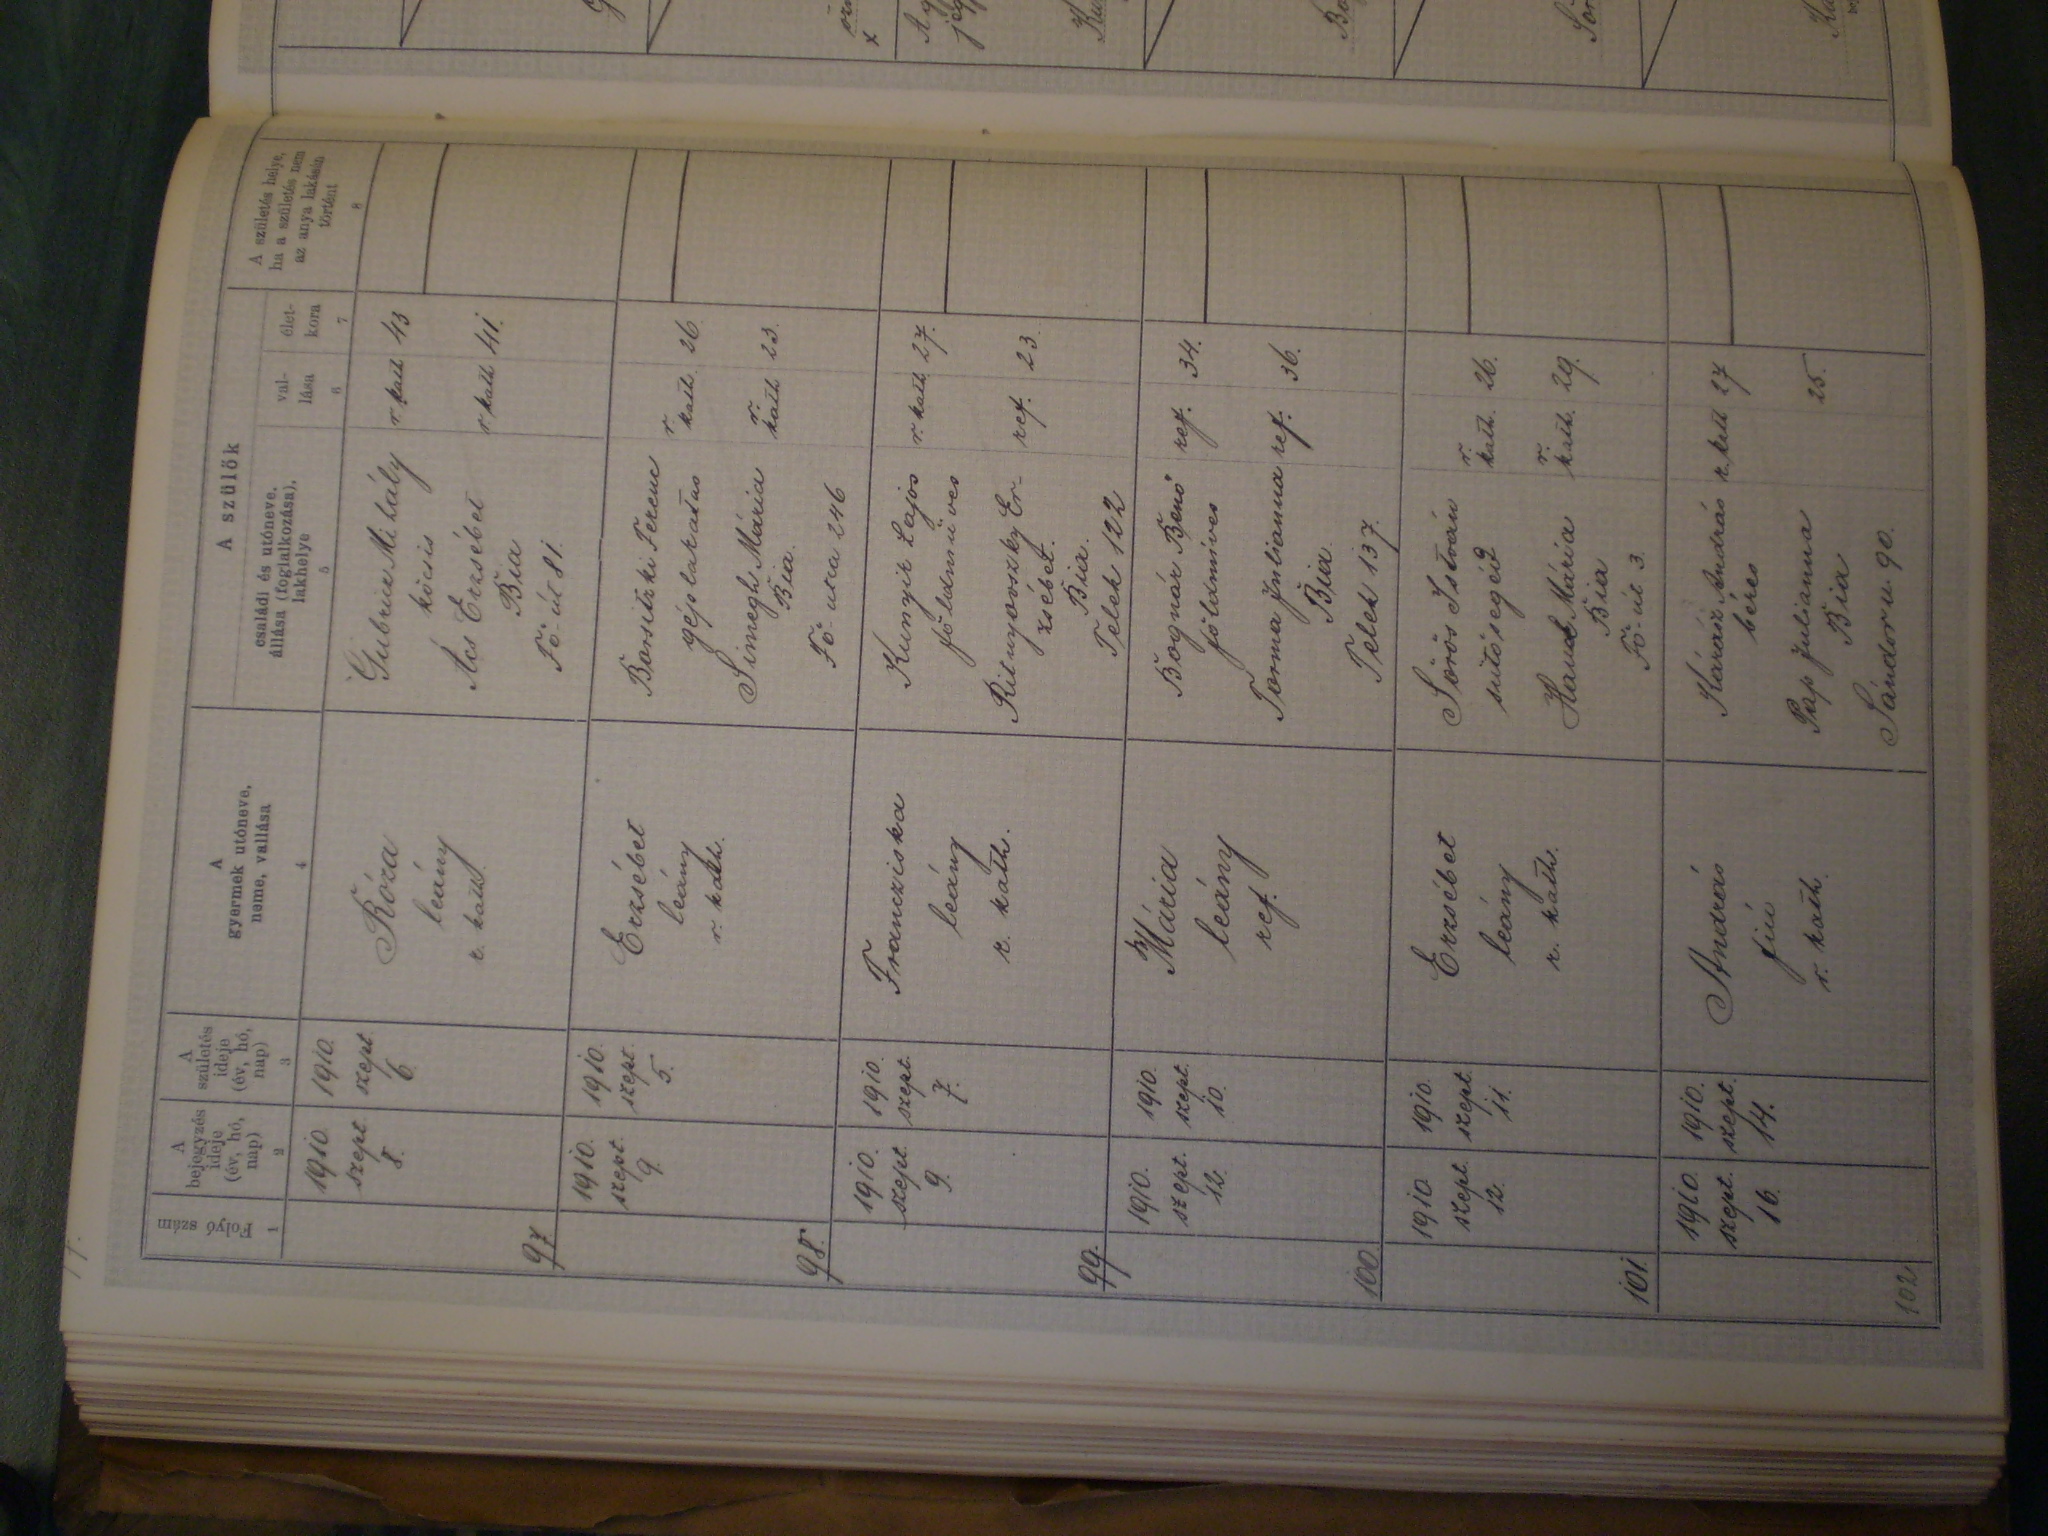 A szülők
Folyó szám
A
bejegyzés
ideje
(év, hó,
nap)
A
születés
ideje
(év, hó,
nap)
A
gyermek utóneve,
neme, vallása
családi és utóneve,
állása (foglalkozása),
lakhelye
val-
lása
élet-
kora
A születés helye,
ha a születés nem
az anya lakásán
történt
1
2
3
4
5
6
7
8
97
1910.
szept.
8.
1910.
szept.
6.
Róza
leány
r. kath.
Mihály
kocsis
Ács Erzsébet
Bia
Fő-út 81.
r. kath
r. kath
43
41.
98.
1910.
szept.
9.
1910.
szept.
5.
Erzsébet
leány
r. kath.
Borsitzki Ferenc
géplakatos
Simegh Mária
Bia.
Fő-utca 246
r.
kath.
r.
kath
26.
23.
99.
1910.
szept.
9.
1910.
szept.
7.
Francziska
leány
r. kath.
Kunyik Lajos
földmüves
Er-
zsébet.
Bia.
Telek 122
r. kath.
ref.
27.
23.
100
1910.
szept.
12.
1910.
szept.
10.
Mária
leány
ref.
Bognár Benő
földmives
Torma Julianna
Bia.
Telek 137.
ref.
ref.
34.
36.
101.
1910.
szept.
12.
1910.
szept.
11.
Erzsébet
leány
r. kath.
Sörös István
sütősegéd
Mária
Bia
Fő-út 3.
r.
kath.
r.
kath.
26.
29.
102
1910.
szept.
16.
1910.
szept.
14.
András
fiú
r. kath.
Kárász András
béres
Pap Julianna
Bia
Sándor u. 90.
r. kath
27
25.